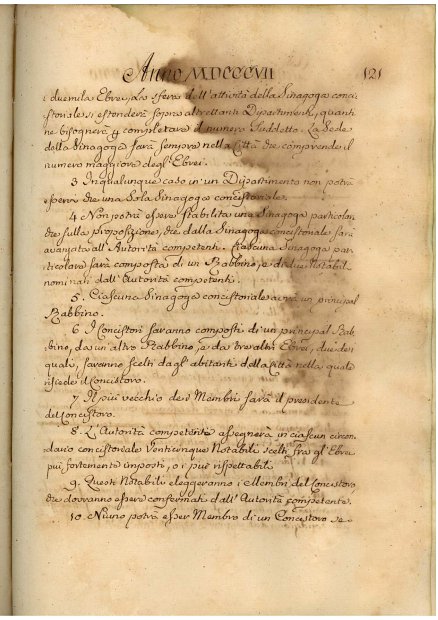 Anno MDCCCVII 121
i duemila Ebrei, La sfera dell'attività della Sinagoga conci-
storiale, si estenderà sopra altrettanti Dipartimenti, quanti
ne bisognerà completare il numero Suddetto. La Sede
della Sinagoga sarà sempre nella Città che comprende il
numero maggiore degl'Ebrei.
3 In qualunque caso in un Dipartimento non potrà
essere che una Sola Sinagoga concistoriale.
4 Non potrà essere stabilita una Sinagoga particolare
che sulla proposizione, che dalla Sinagoga concistoriale sarà
avanzata all'Autorità competenti. Ciascuna Sinagoga par-
ticolare sarà composta di un Rabbino, e di due Notabili
nominati dall'Autorità competenti.
5. Ciascuna Sinagoga concistoriale avrà un principal
Rabbino.
6 I Concistori saranno composti di un principal Rab-
bino, da un'altro Rabbino, e da tre altri Ebrei, due dei
quali, saranno scelti dagl'abitanti della Città nella quale
risiede il Concistoro.
7 Il più vecchio dei Membri sarà il presidente
del Concistoro.
8. L'Autorità competente assegnerà in ciascun circon-
dario concistoriale Venticinque Notabili scelti fra gl'Ebrei
più fortemente imposti, o i più rispettabili
9. Questi Notabili eleggeranno i Membri del Concistoro,
che dovranno essere confermati dall'Autorità competente.
10. Niuno potrà esser Membro di un Concistoro se-